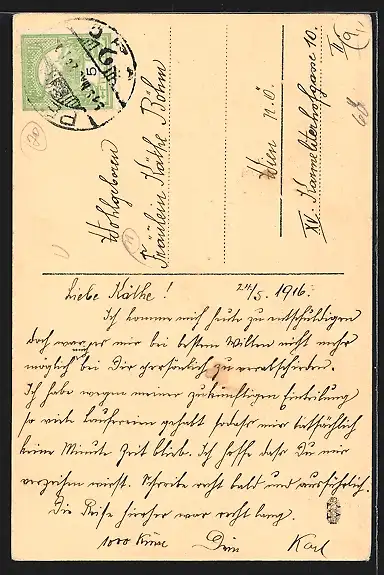 Wohlgeboren
Fräulein Käthe Böhm
Wien N.Ö.
XV. Karmeliterhofgasse 10.
5
Liebe Käthe! 24/5. 1916.
Ich komme mich heute zu entschuldigen
doch war es mir bei bestem Willen nicht mehr
möglich bei Dir persönlich zu verabschieden.
Ich habe wegen meiner zukünftigen Einteilung
so viele Laufereien gehabt sodass mir tatsächlich
keine Minute Zeit blieb. Ich hoffe dass Du mir
verzeihen wirst. Schreibe recht bald und ausführlich.
Die Reise hierher war recht lang.
1000 Küsse Dein Karl